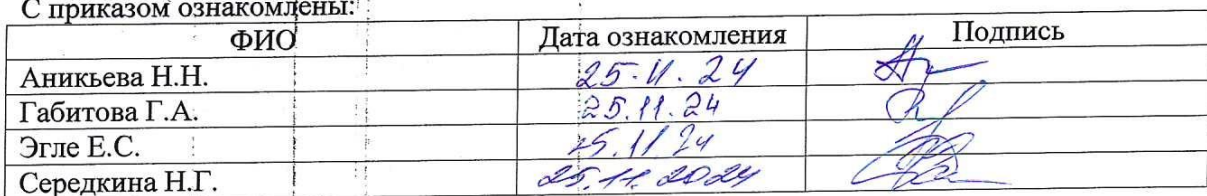 С приказом ознакомлены:
ФИО Дата ознакомления Подпись
Аникьева Н.Н. 25.11.24
Габитова Г.А. 25.11.24
Эгле Е.С. 25.11 24
Середкина Н.Г. 25.11.2024